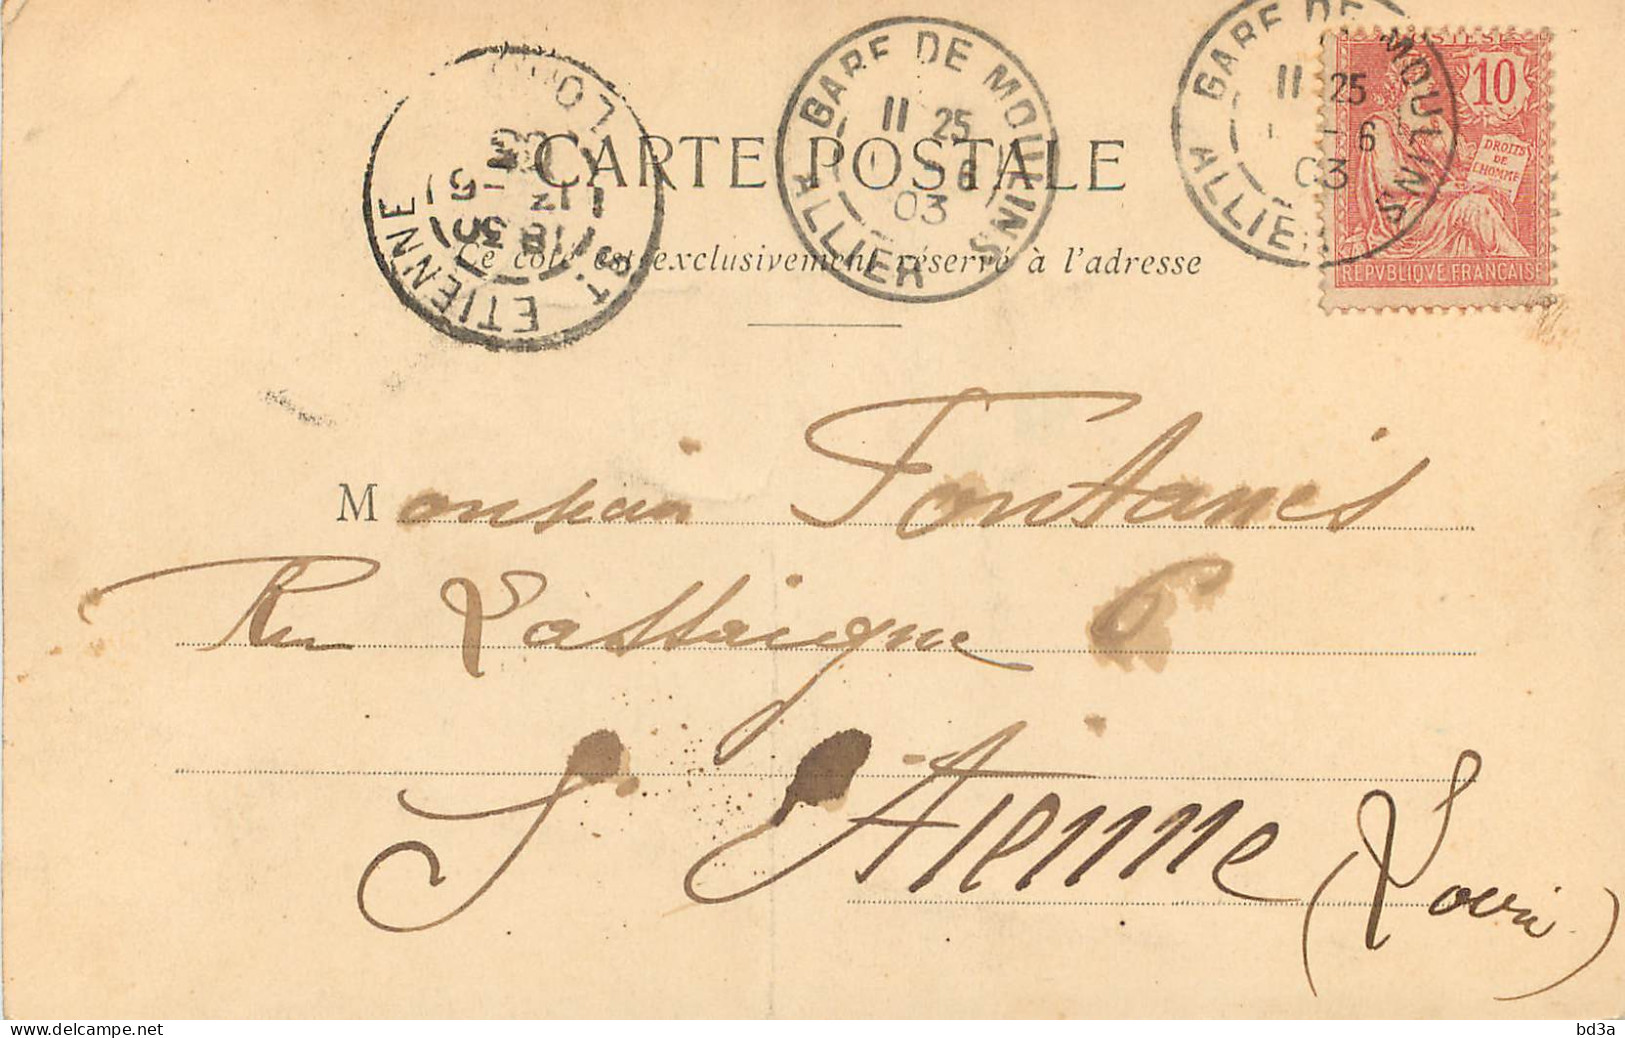 GARE DE MOULINS
11 25
1 - 6
03
ALLIER
GARE DE MOULINS
11 25
- 6
03
ALLIER
POSTES
10
DROITS
DE
L'HOMME
REPVBLIQVE FRANÇAISE
ST ETIENNE
LOIRE
CARTE POSTALE
Ce côté est exclusivement réservé à l'adresse
Monsieur Fontanès
Rue Lassaigne 6
St Etienne (Loire)
bd3a